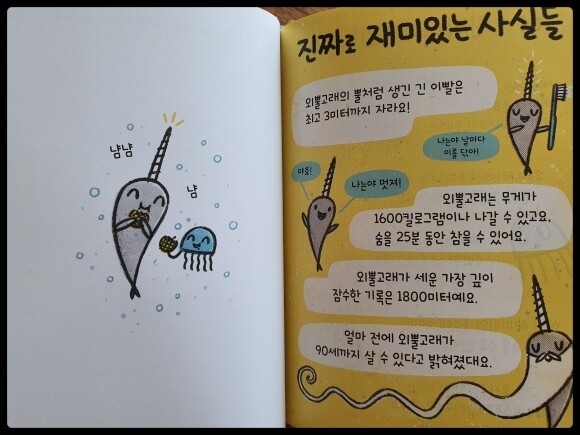 냠냠
냠
진짜로 재미있는 사실들
외뿔고래의 뿔처럼 생긴 긴 이빨은
최고 3미터까지 자라요!
나는야 날마다
이를 닦아!
야호!
나는야 멋져!
외뿔고래는 무게가
1600킬로그램이나 나갈 수 있고요,
숨을 25분 동안 참을 수 있어요.
외뿔고래가 세운 가장 깊이
잠수한 기록은 1800미터예요.
얼마 전에 외뿔고래가
90세까지 살 수 있다고 밝혀졌대요.